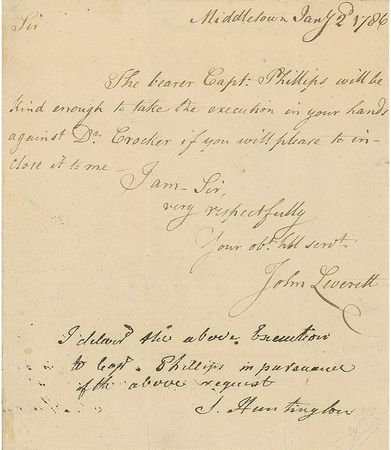 Middletown Jany 2d 1786
Sir
The bearer Capt: Phillips will be
kind enough to take the execution in your hands
against Dr. Crocker if you will please to in-
close it to me -
I am - Sir,
very respectfully
Your obt. hbl servt.
John Leverett
I deliverd the above Execution
to Capt. Phillips in pursuance
of the above request
S. Huntington